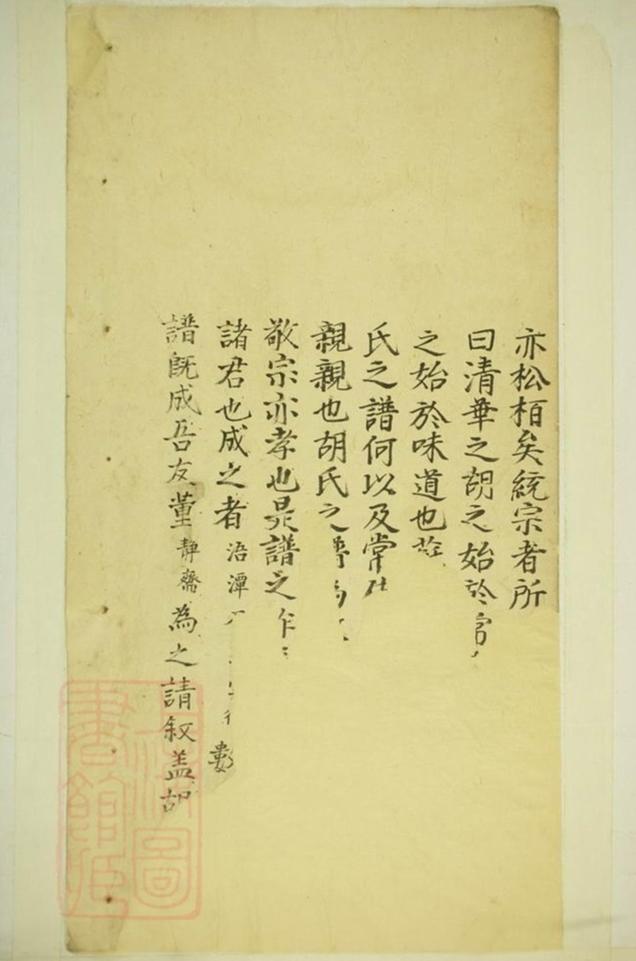 亦松栢矣統宗者所
曰清華之胡之始於官
之始於味道也
氏之譜何以及常仕
親親也胡氏之
敬宗亦孝也是譜之作
諸君也成之者浯潭
婁
譜既成吾友董靜齋為之請叙盖胡
圖
書館